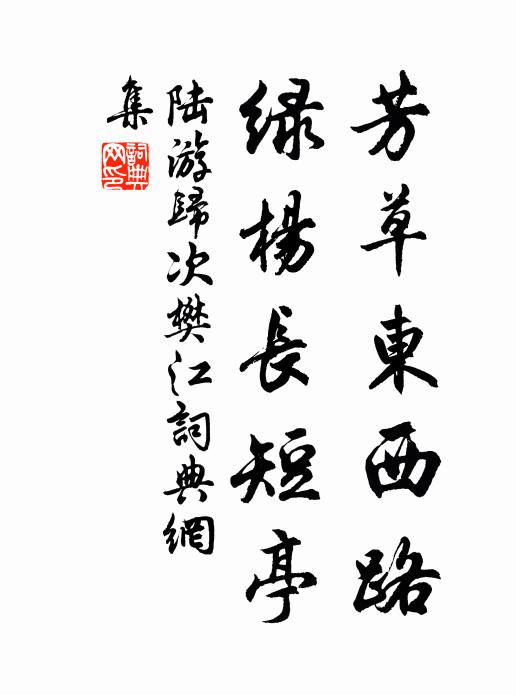 芳草東西路
綠楊長短亭
陆游歸次樊江詞典網
集
詞典
网印